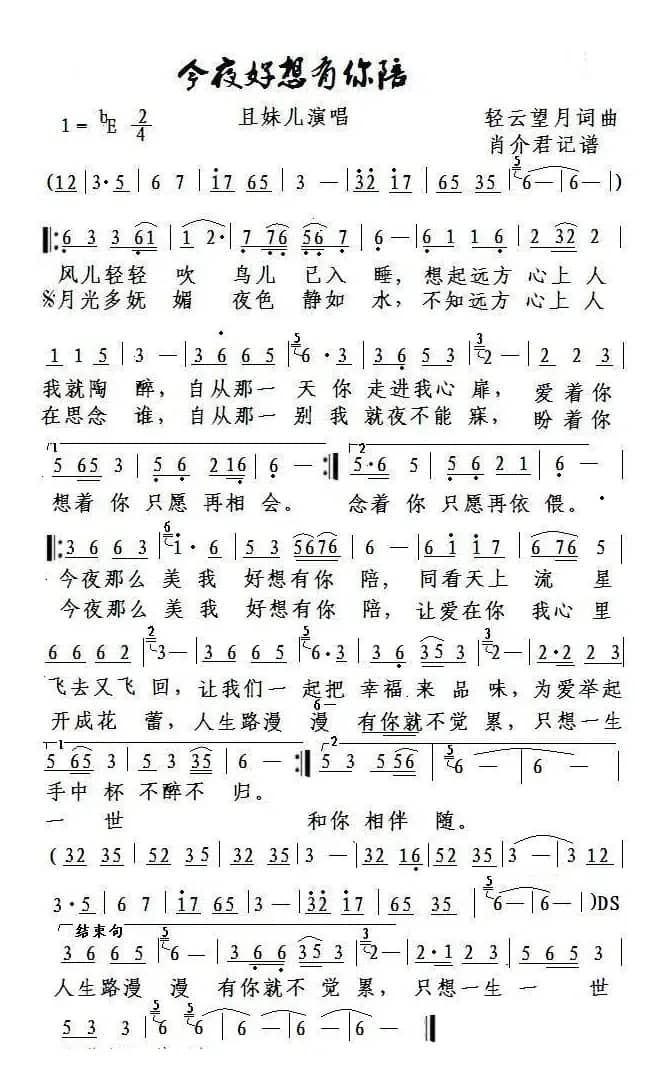 今夜好想有你陪
1= ᵇE 2/4 且妹儿演唱 轻云望月词曲
肖介君记谱
(12 | 3·5 | 6 7 | i7 65 | 3 — | 32 i7 | 65 35 | 6— | 6— |)
‖: 6 3 3 61 | 1 2· | 7 76 56 7 | 6 — | 6 1 1 6 | 2 32 2 |
风儿轻轻 吹 鸟儿 已入 睡，想起远方 心上人
※月光多妩 媚 夜色 静如 水，不知远方 心上人
1 1 5 | 3 — | 3 6 6 5 | 6 ·3 | 3 6 5 3 | 2— | 2 2 3 |
我就陶 醉，自从那一 天你 走进我心 扉， 爱着你
在思念 谁，自从那一 别我 就夜不能 寐， 盼着你
1
5 65 3 | 5 6 2 16 | 6 — :‖
2
5·6 5 | 5 6 2 1 | 6 — |
想着 你 只愿 再相 会。 念着 你 只愿再依 偎。
‖: 3 6 6 3 | i· 6 | 5 3 5676 | 6 — | 6 i i 7 | 6 76 5 |
今夜那么 美我 好想有你 陪，同看天上 流 星
今夜那么 美我 好想有你 陪，让爱在你 我心 里
6 6 6 2 | 3— | 3 6 6 5 | 6·3 | 3 6 35 3 | 2— | 2·2 2 3 |
飞去又飞 回，让我们一 起把 幸福 来 品 味，为爱举起
6—
开成花 蕾，人生路漫 漫 有你就不觉 累，只想一生
1
5 65 3 | 5 3 5 35 | 6 — :‖
2
5 3 5 56 | 6 — | 6 — |
手中 杯 不醉不 归。
一 世 和你 相伴 随。
( 32 35 | 52 35 | 6 — | 32 35 | 3 — | 32 16 | 65 35 | 3 — | 3 12 |
3·5 | 6 7 | i7 65 | 3 — | 32 i7 | 65 35 | 6 — | 6 — )DS
结束句
3 6 6 5 | 6 — | 3 6 6 35 3 | 3— | 2·1 2 3 | 5 65 3 |
人生路漫 漫 有你就不 觉 累，只想一生 一 世
5 3 5 | 6 6 | 6 — ‖